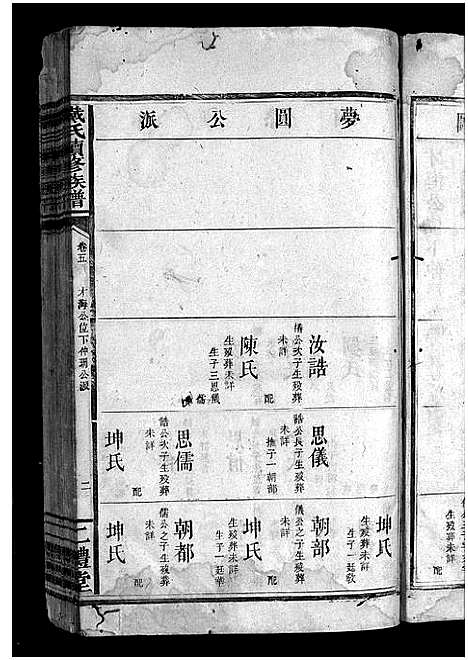 夢圓公派
汝誥
儒公次子生歿葬
未詳
配
陳氏
生歿葬未詳
生子三思儀
儒
思儀
誥公長子生歿葬
未詳
撫子一朝部
思儒
誥公次子生歿葬
未詳
配
坤氏
坤氏
生歿葬未詳
生子一廷敎
朝部
儀公之子生歿葬
未詳
配
坤氏
生歿葬未詳
生子一廷華
朝都
儒公之子生歿葬
未詳
配
坤氏
戴氏續修族譜
卷五
才海公位下仲珦公派
二
二禮堂